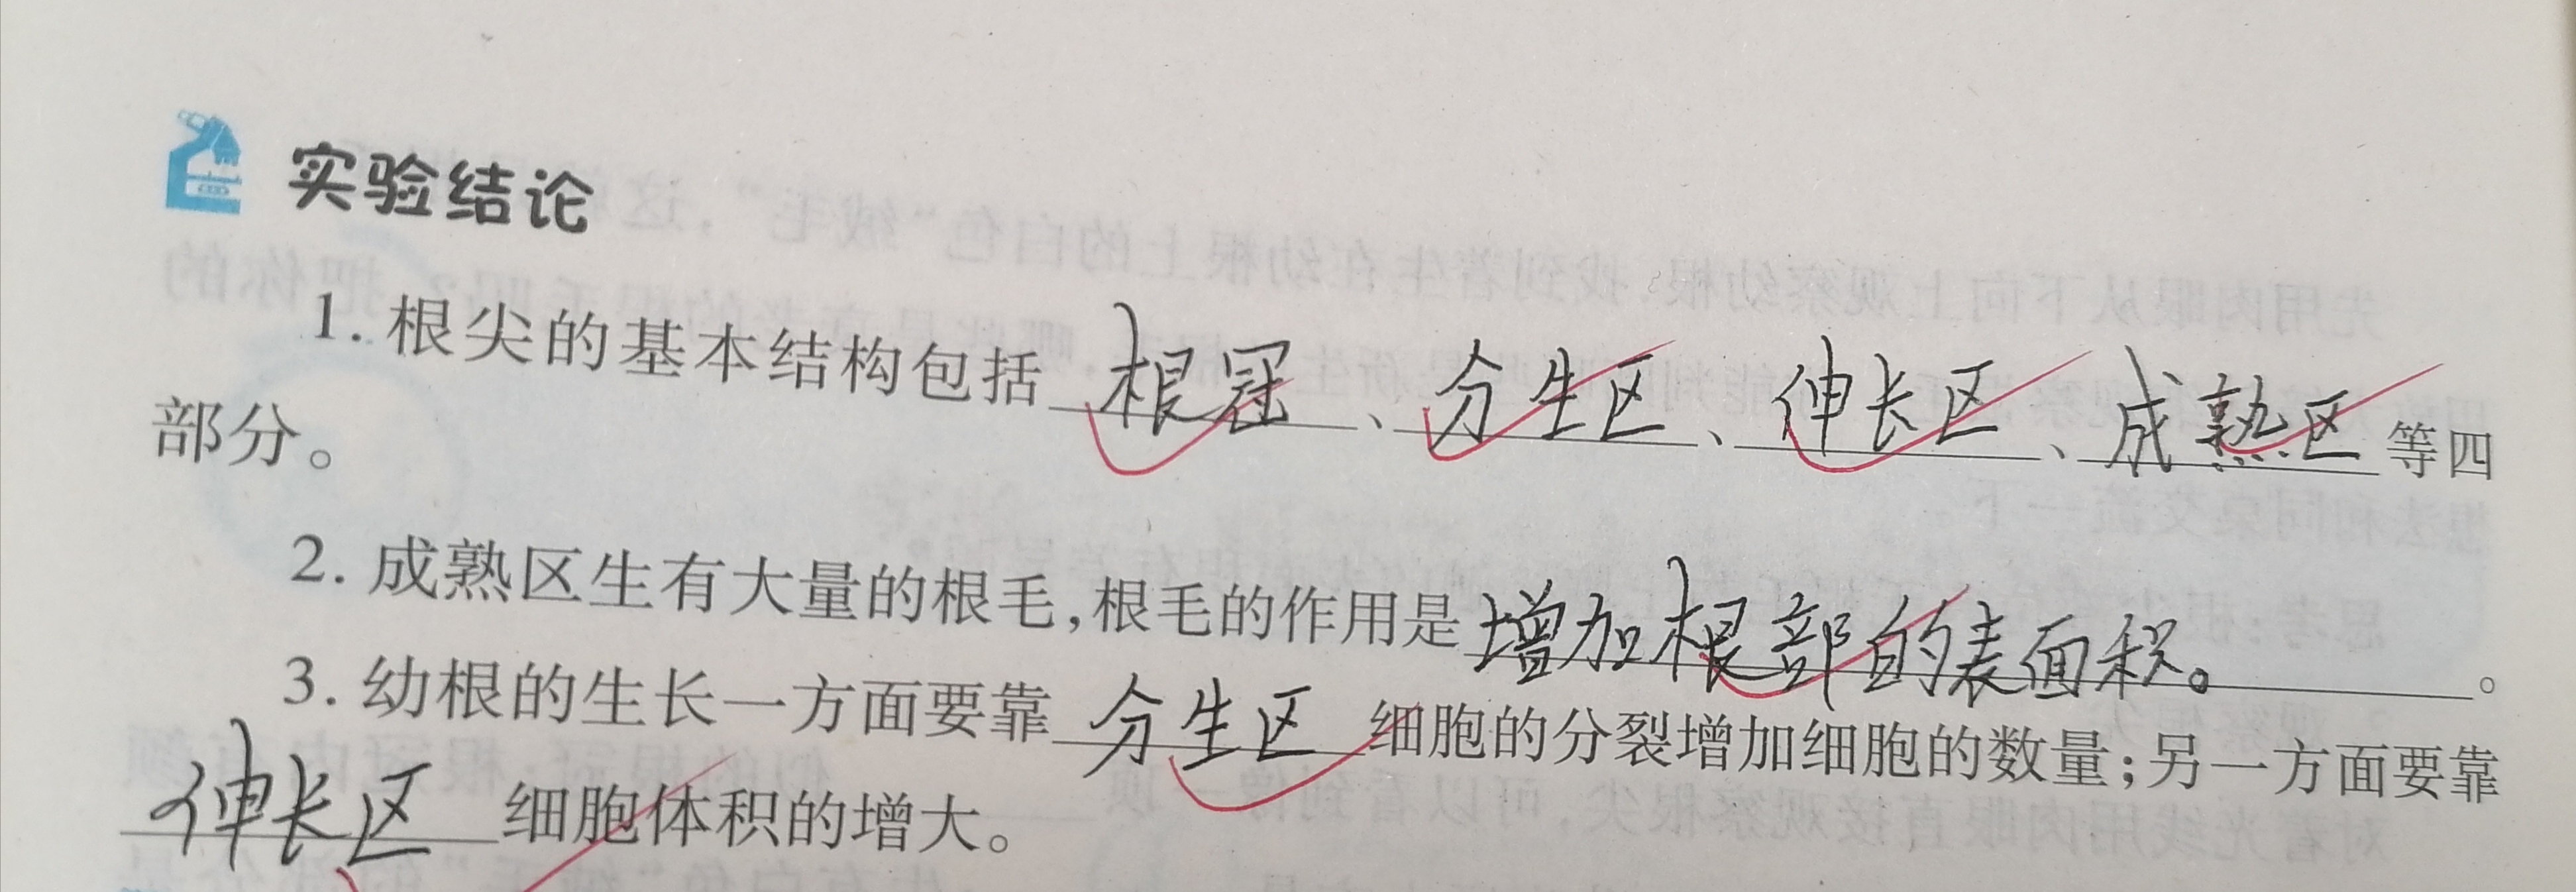 实验结论
1. 根尖的基本结构包括 根冠 、 分生区 、 伸长区 、 成熟区 等四
部分。
2. 成熟区生有大量的根毛,根毛的作用是 增加根部的表面积。 。
3. 幼根的生长一方面要靠 分生区 细胞的分裂增加细胞的数量;另一方面要靠
伸长区 细胞体积的增大。